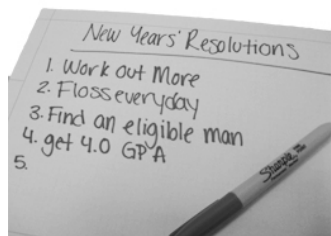 New Years' Resolutions
1. Work out More
2. Floss everyday
3. Find an eligible man
4. get 4.0 GPA
5.
Sharpie